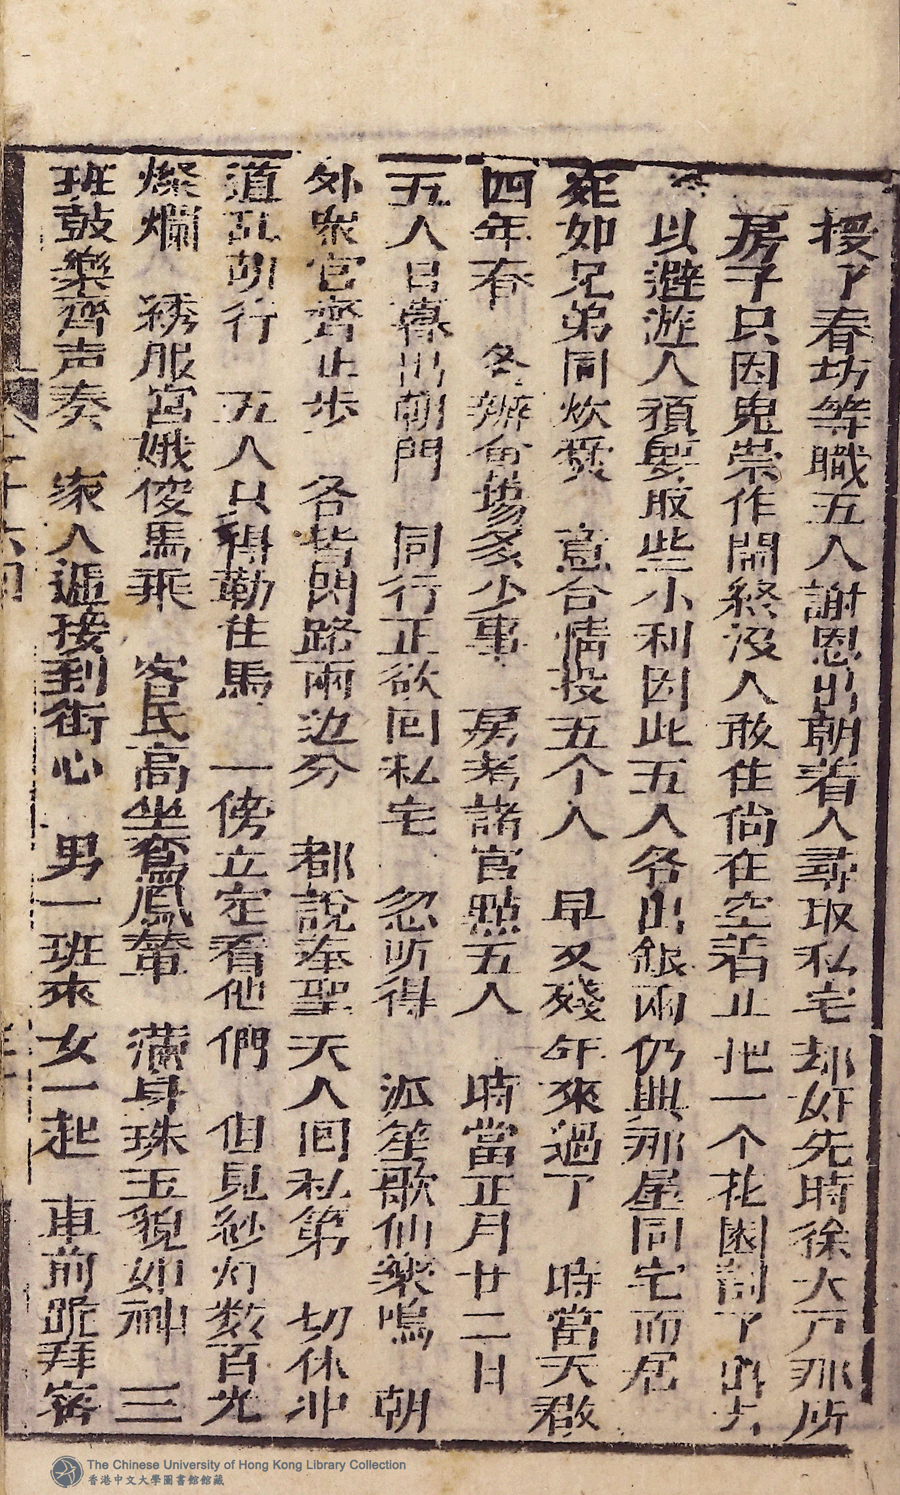 授了春坊等職五人謝恩出朝着人尋取私宅却好先時徐大戶那所
房子只因鬼祟作鬧終沒人敢住尚在空着止把一个花園割了出去
以避遊人須要取些小利因此五人各出銀兩仍典那屋同宅而居
宛如兄弟同炊爨 意合情投五个人 早又殘年來過了 時當天啟
四年春 各辦會塲多少事 房考諸官點五人 時當正月廿二日
五人日暮出朝門 同行正欲回私宅 忽听得 派笙歌仙樂鳴 朝
外衆官齊止步 各皆閃路兩边分 都說奉聖天人回私第 切休冲
道乱胡行 五人只得勒住馬 一傍立定看他們 但見紗灯数百光
燦爛 綉服宮娥俊馬乘 客氏高坐鸞鳳輦 滿身珠玉貌如神 三
班鼓樂齊声奏 家人逓接到街心 男一班來女一起 車前跪拜客
二十六回
The Chinese University of Hong Kong Library Collection
香港中文大學圖書館館藏